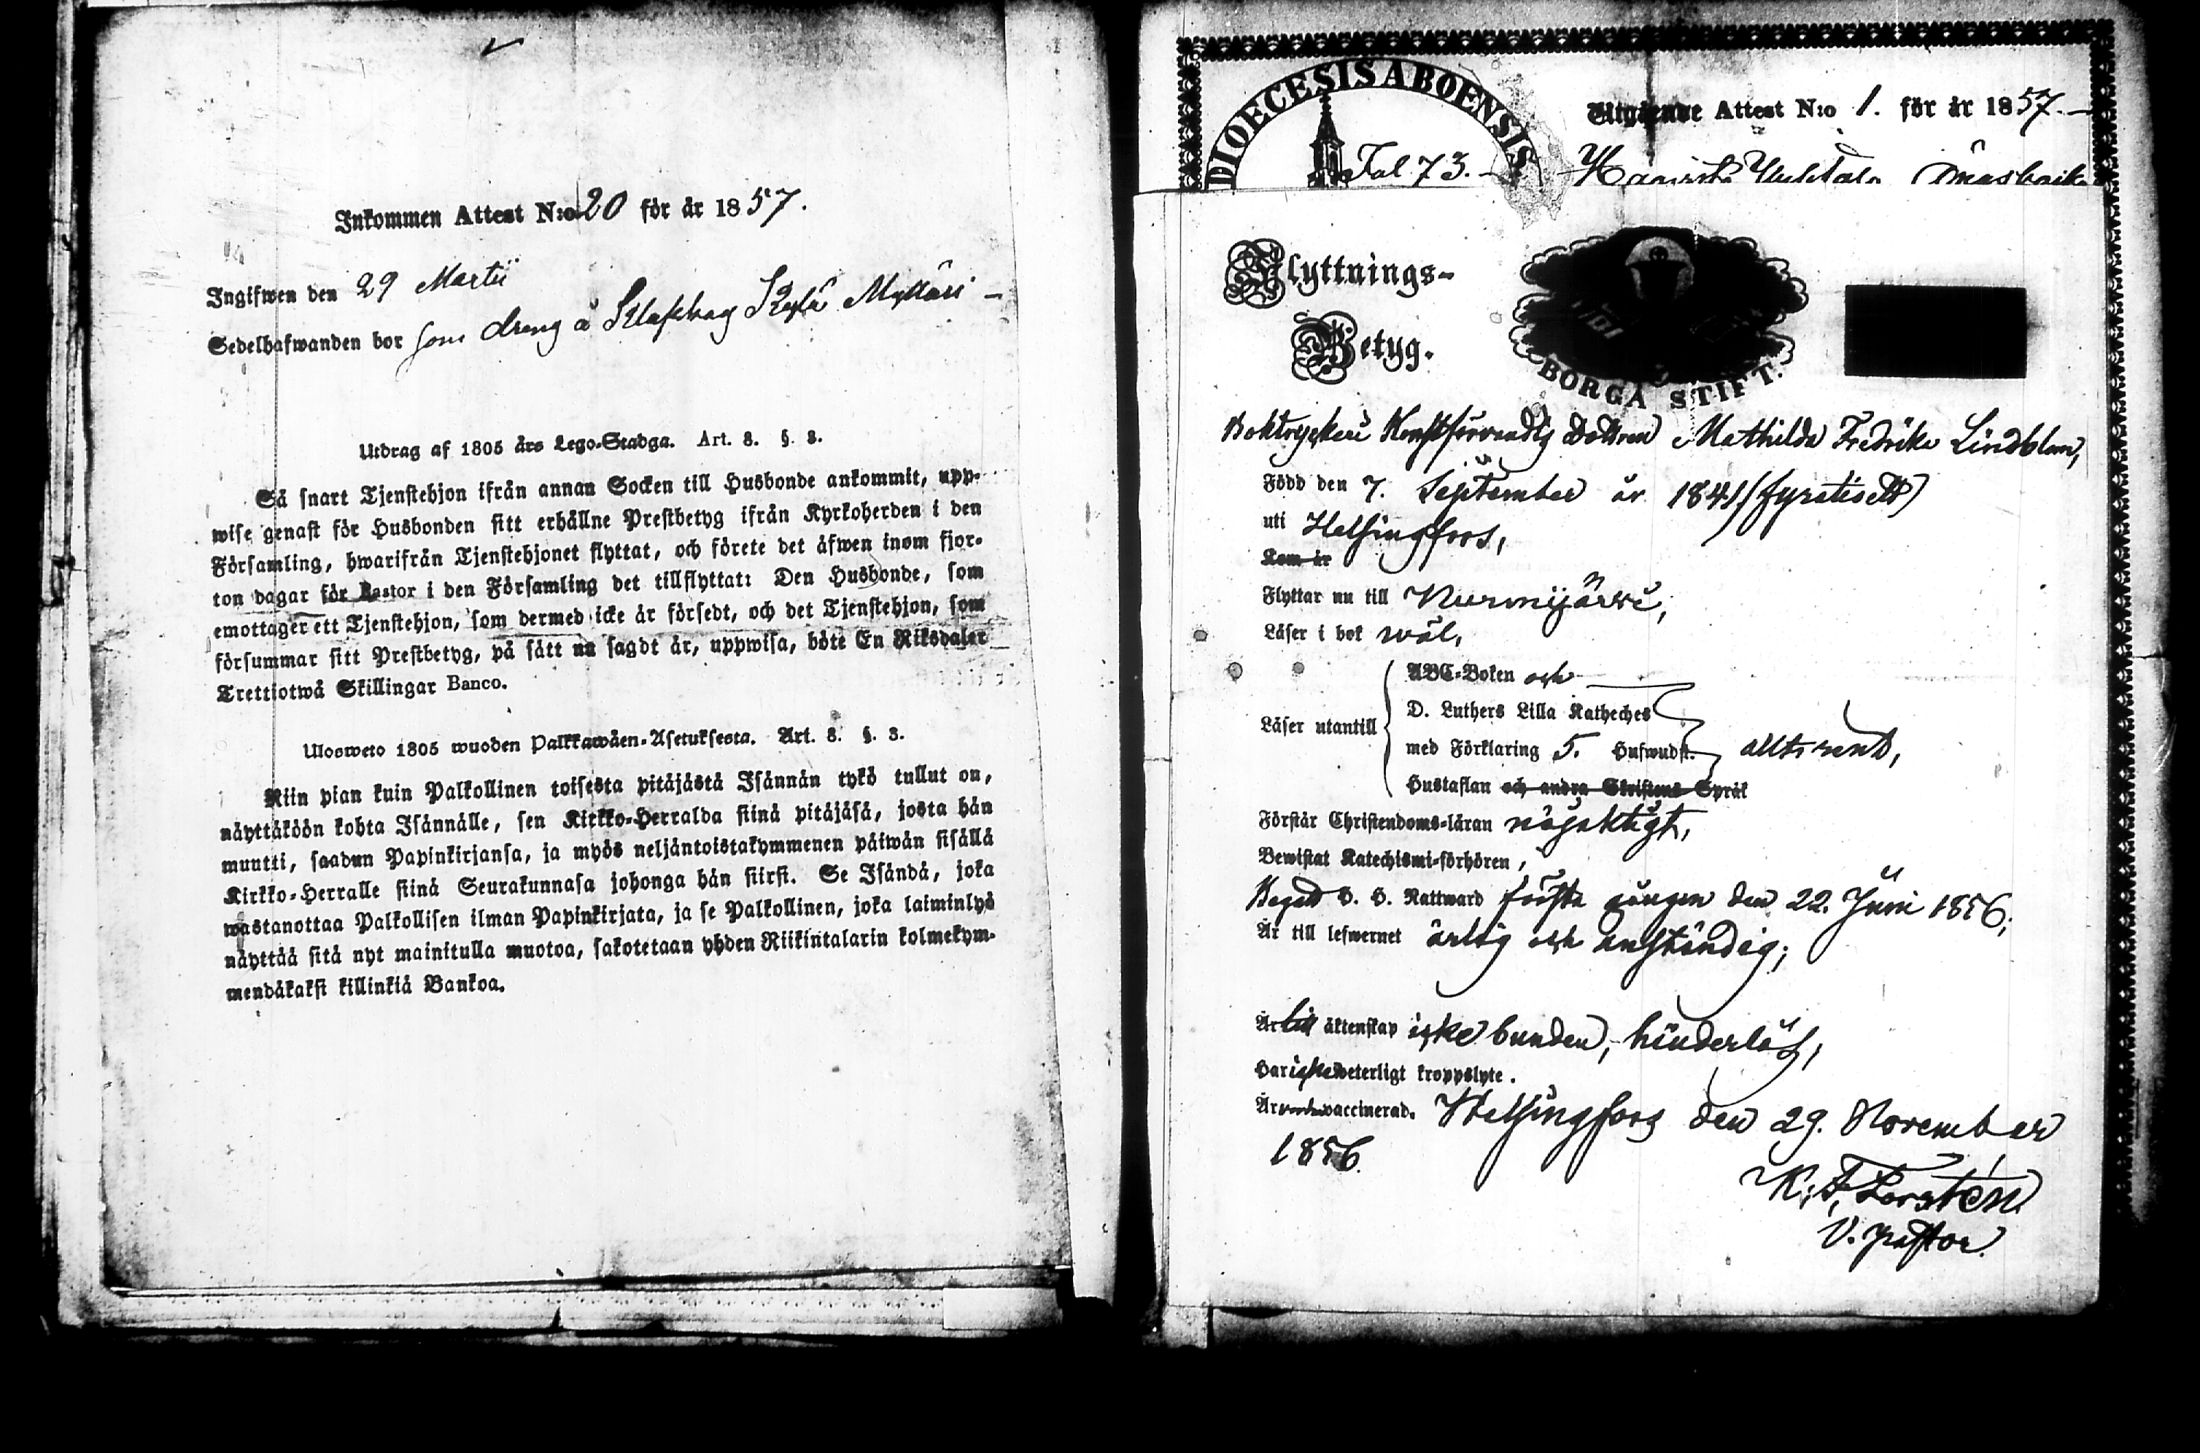 Inkommen Attest N:o 20 för år 1857.
Ingifwen den 29 Martii
Sedelhafwanden bor som dreng å Klaphag Kylä Myllari
Utdrag af 1805 års Lego-Stadga. Art. 8. §. 3.
Så snart Tjenstehjon ifrån annan Socken till Husbonde ankommit, upp-
wise genast för Husbonden sitt erhållne Prestbetyg ifrån Kyrkoherden i den
Församling, hwarifrån Tjenstehjonet flyttat, och förete det åfwen inom fjor-
ton dagar för Pastor i den Församling det tillflyttat: Den Husbonde, som
emottager ett Tjenstehjon, som dermed icke är försedt, och det Tjenstehjon, som
försummar sitt Prestbetyg, på sått nu sagdt år, uppwisa, böte En Riksdaler
Trettiotwå Skillingar Banco.
Ulosweto 1805 wuoden Palkkawåen-Asetuksesta. Art. 8. §. 3.
Niin pian kuin Palkollinen toisesta pitåjåstå Isånnån tykö tullut on,
nåyttåköön kohta Isånnålle, sen Kirkko-Herralda siinå pitåjåså, josta hån
muutti, saadun Papinkirjansa, ja myös neljåntoistakymmenen påiwån sisållå
Kirkko-Herralle siinå Seurakunnasa johonga hån siirsi. Se Isåndå, joka
wastanottaa Palkollisen ilman Papinkirjata, ja se Palkollinen, joka laiminlyö
nåyttåå sitå nyt mainitulla muotoa, sakotetaan yhden Riikintalarin kolmekym-
mendåkaksi killinkiå Bankoa.
DIOECESIS ABOENSIS
Utgående Attest N:o 1. för år 1857.
Fol 73.
Flyttnings-
Betyg.
BORGÅ STIFT.
Boktryckeri Konstförvandtg Dottren Mathilda Fredrika Lindblom,
Född den 7. September år 1841 (fyratiett)
uti Helsingfors,
Kom år
Flyttar nu till Nurmijärvi,
Låser i bok wäl,
Låser utantill
ABC-Boken och
D. Luthers Lilla Katheches
med Förklaring 5. Hufwudst.
Hustaflan och andra Skriftens Språk
allt rent,
Förstår Christendoms-låran nöjaktigt,
Bewistat Katechismi-förhören,
Begått H. H. Nattward första gången den 22. Juni 1856;
Är till lefwernet ärlig och anständig;
Är till åktenskap icke bunden, hinderlös,
Har icke weterligt kroppslyte.
Är vaccinerad. Helsingfors den 29. November
1856.
V. Pastor.